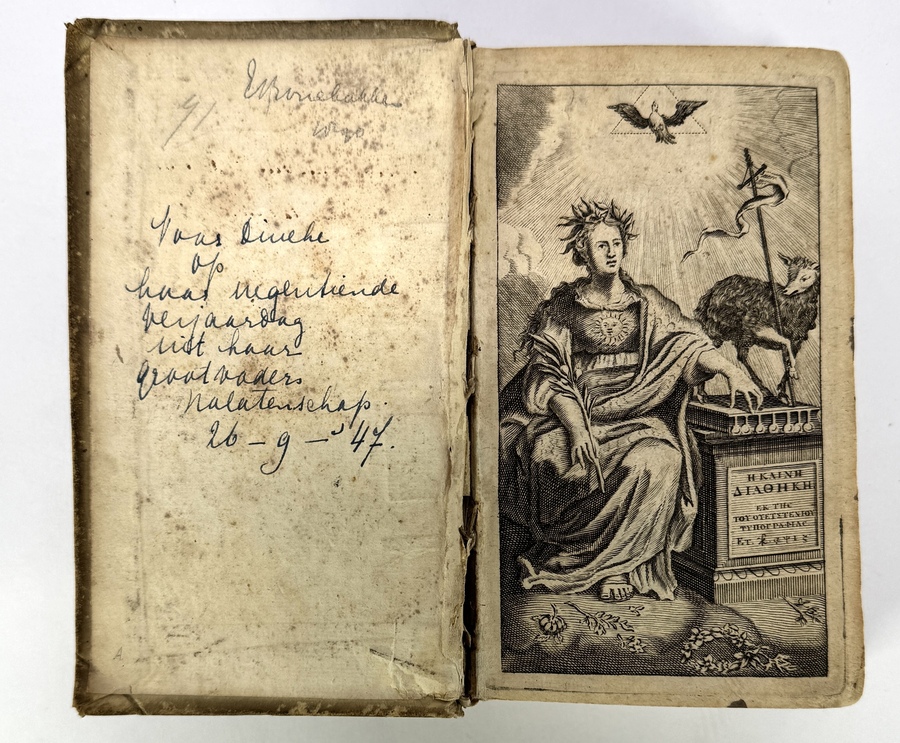 91
Voor Dineke
op
haar negentiende
verjaardag
uit haar
grootvaders
nalatenschap.
26 – 9 – '47.
A
Η ΚΑΙΝΗ
ΔΙΑΘΗΚΗ
ΕΚ ΤΗΣ
ΤΟΥ ΟΥΕΤΣΤΕΝΙΟΥ
ΤΥΠΟΓΡΑΦΙΑΣ
ΕΤ.